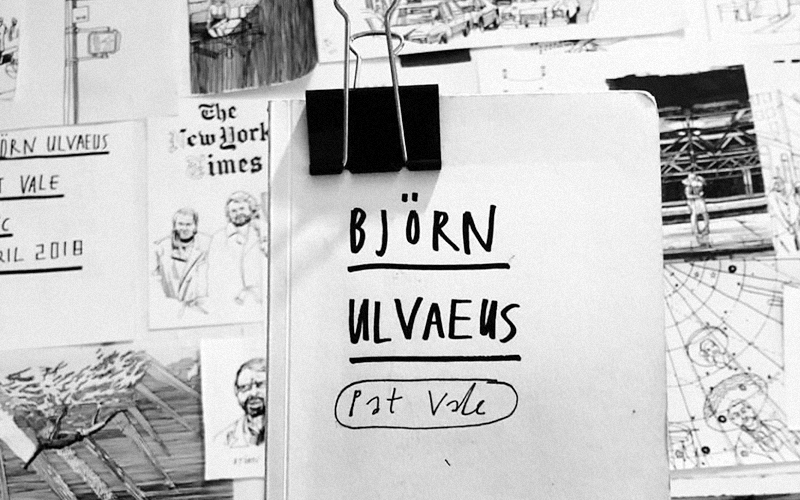 BJÖRN
ULVAEUS
Pat Vale
The
New York
Times
ÖRN ULVAEUS
T VALE
C
RIL 2018